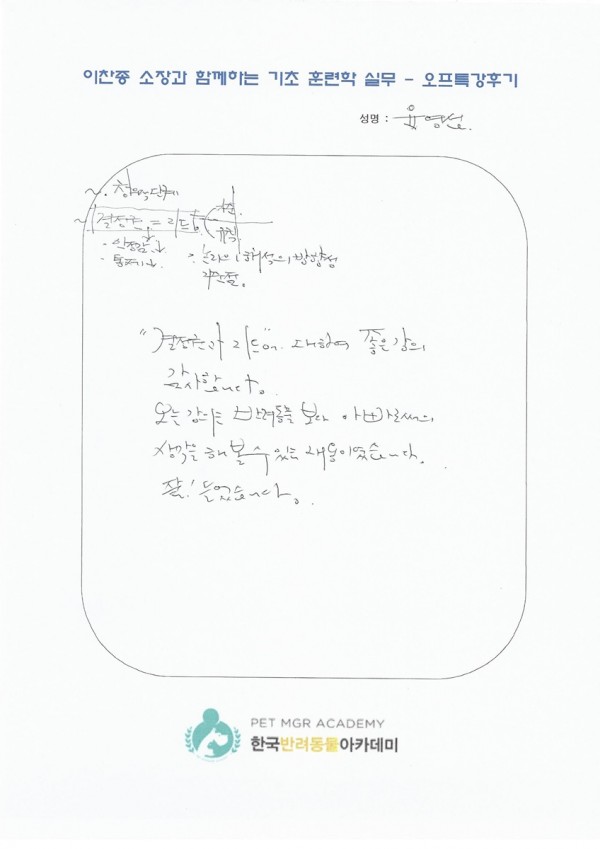 이찬종 소장과 함께하는 기초 훈련학 실무 - 오프특강후기
성명 : 육영선
결정권 = 리드
안정감↓
통제↓
"결정권과 리드"에 대하여 좋은강의
감사합니다.
오늘 강의는 반려동물 보다 아빠로써의
생각을 해볼 수 있는 내용이였습니다.
잘! 들었습니다.
PET MGR ACADEMY
한국반려동물아카데미